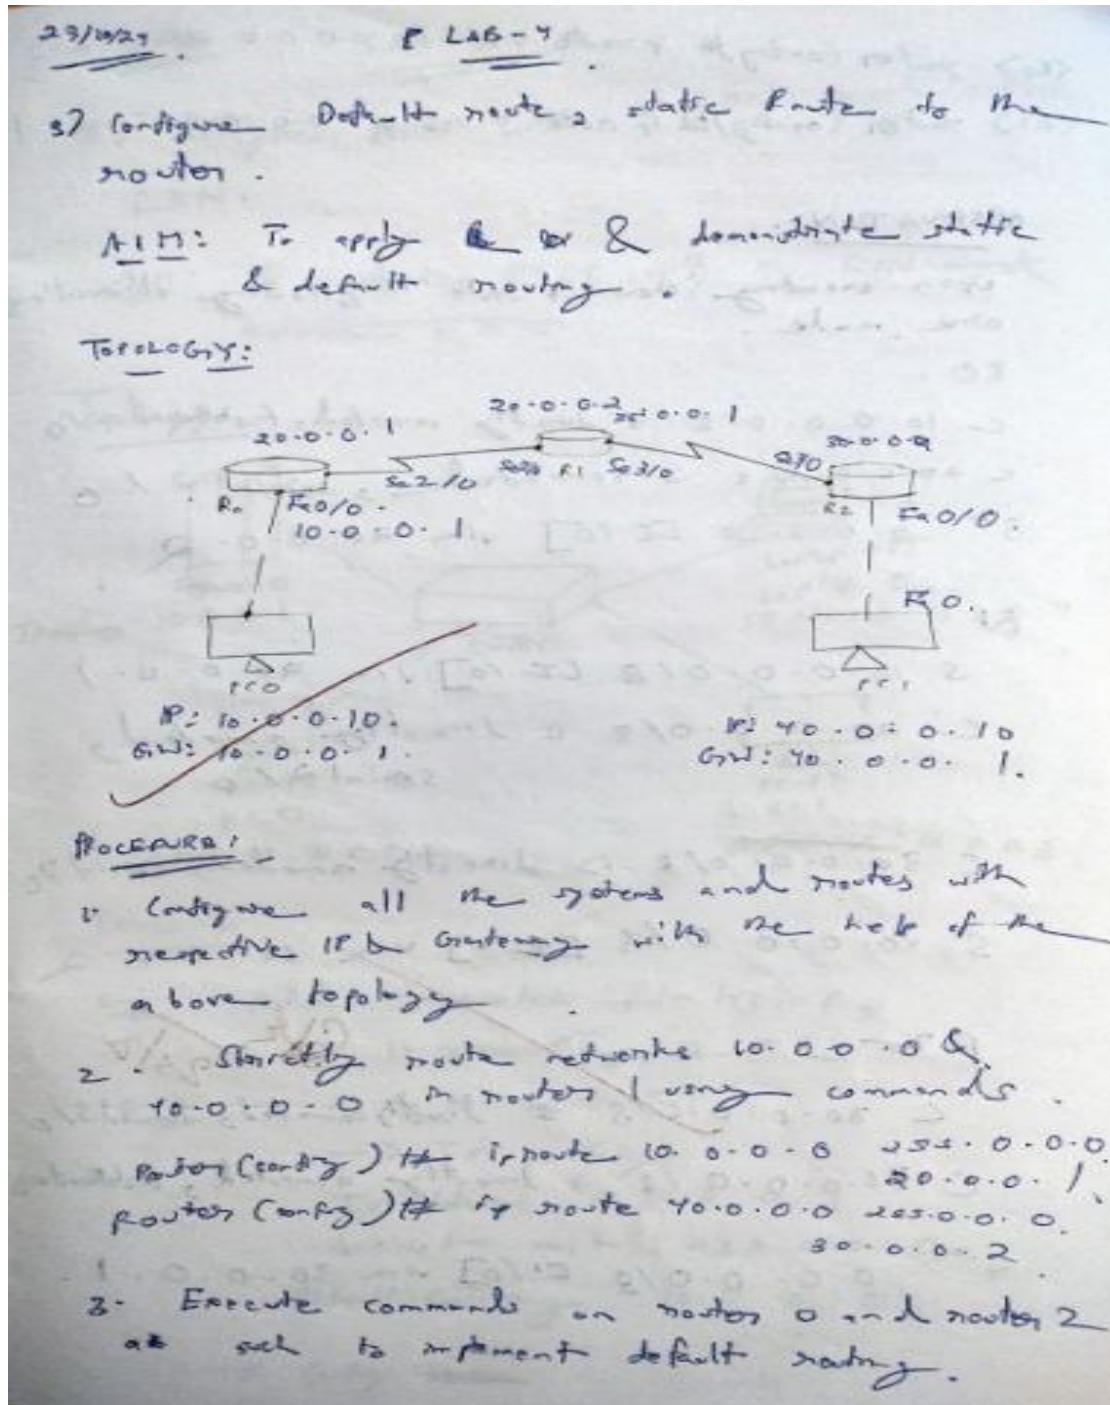 LAB-4
3) Configure Default route, static Route to the
router.
AIM: To apply & demonstrate static
& default routing.
TOPOLOGY:
20.0.0.2
20.0.0.1
Se2/0
R1
Se3/0
R0
Fa0/0
10.0.0.1
R2
Fa0/0.
Fa0.
PC0
PC1
IP: 10.0.0.10.
GW: 10.0.0.1.
IP: 40.0.0.10
GW: 40.0.0.1.
PROCEDURE:
1. Configure all the systems and routes with
respective IP & Gateway with the help of the
above topology.
2. route networks 10.0.0.0 &
40.0.0.0 in router 1 using commands.
Router(config)# ip route 10.0.0.0 255.0.0.0
20.0.0.1
Router(config)# ip route 40.0.0.0 255.0.0.0.
30.0.0.2
3. Execute commands on router 0 and router 2
as such to implement default routing.